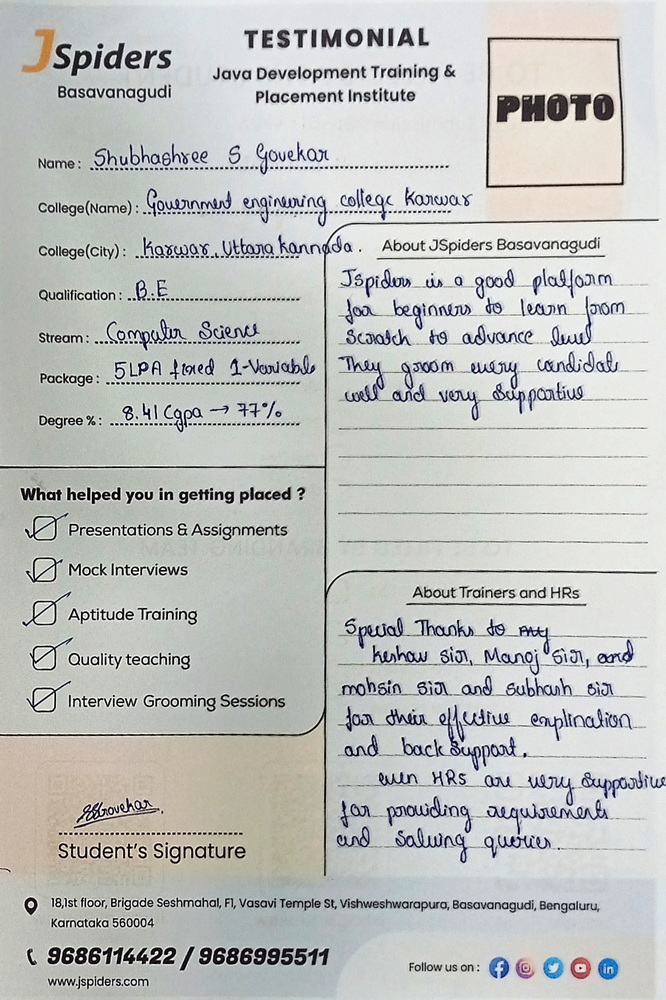 JSpiders
Basavanagudi
TESTIMONIAL
Java Development Training &
Placement Institute
PHOTO
Name : Shubhashree S Govekar
College(Name) : Government engineering college Karwar
College(City) : Karwar, Uttara kannada .
Qualification : B.E
Stream : Computer Science
Package : 5LPA fixed 1-Variable
Degree % : 8.41 Cgpa → 77%
What helped you in getting placed ?
Presentations & Assignments
Mock Interviews
Aptitude Training
Quality teaching
Interview Grooming Sessions
Student's Signature
About JSpiders Basavanagudi
Jspiders is a good platform
for beginners to learn from
scratch to advance level
They groom every candidate
well and very supportive
About Trainers and HRs
Special Thanks to
keshav sir, Manoj sir, and
mohsin sir and subhash sir
for their effective explination
and back support.
even HRs are very supportive
for providing requirements
and salving queries.
18,1st floor, Brigade Seshmahal, F1, Vasavi Temple St, Vishweshwarapura, Basavanagudi, Bengaluru,
Karnataka 560004
9686114422 / 9686995511
www.jspiders.com
Follow us on :